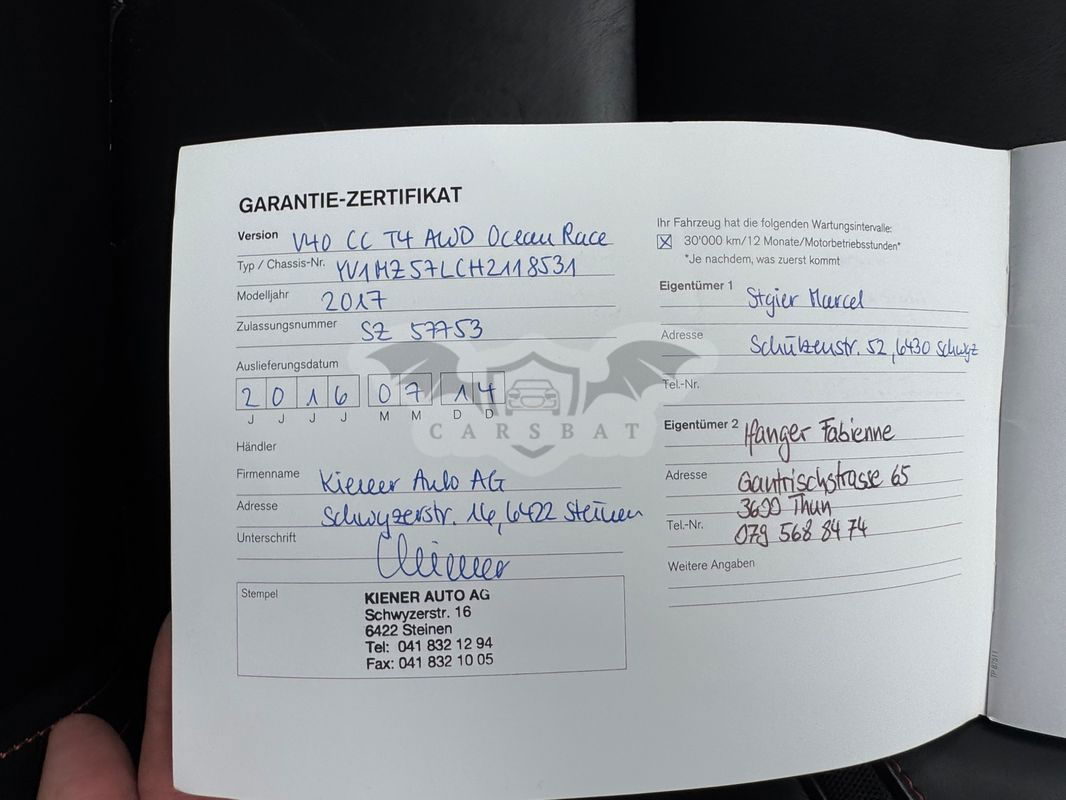 GARANTIE-ZERTIFIKAT
Version V40 CC T4 AWD Ocean Race
Typ / Chassis-Nr. YV1MZ57LCH2118531
Modelljahr 2017
Zulassungsnummer SZ 57753
Auslieferungsdatum
2016 07 14
J J J J M M D D
Händler
Firmenname Kiener Auto AG
Adresse Schwyzerstr. 16, 6422 Steinen
Unterschrift Kiener
Stempel
KIENER AUTO AG
Schwyzerstr. 16
6422 Steinen
Tel: 041 832 12 94
Fax: 041 832 10 05
Ihr Fahrzeug hat die folgenden Wartungsintervalle:
30'000 km/12 Monate/Motorbetriebsstunden*
*Je nachdem, was zuerst kommt
Eigentümer 1 Marcel
Adresse Schützenstr. 52, 6430 Schwyz
Tel.-Nr.
Eigentümer 2 Fabienne
Adresse Gantrischstrasse 65
3600 Thun
Tel.-Nr. 079 568 84 74
Weitere Angaben
CARSBAT